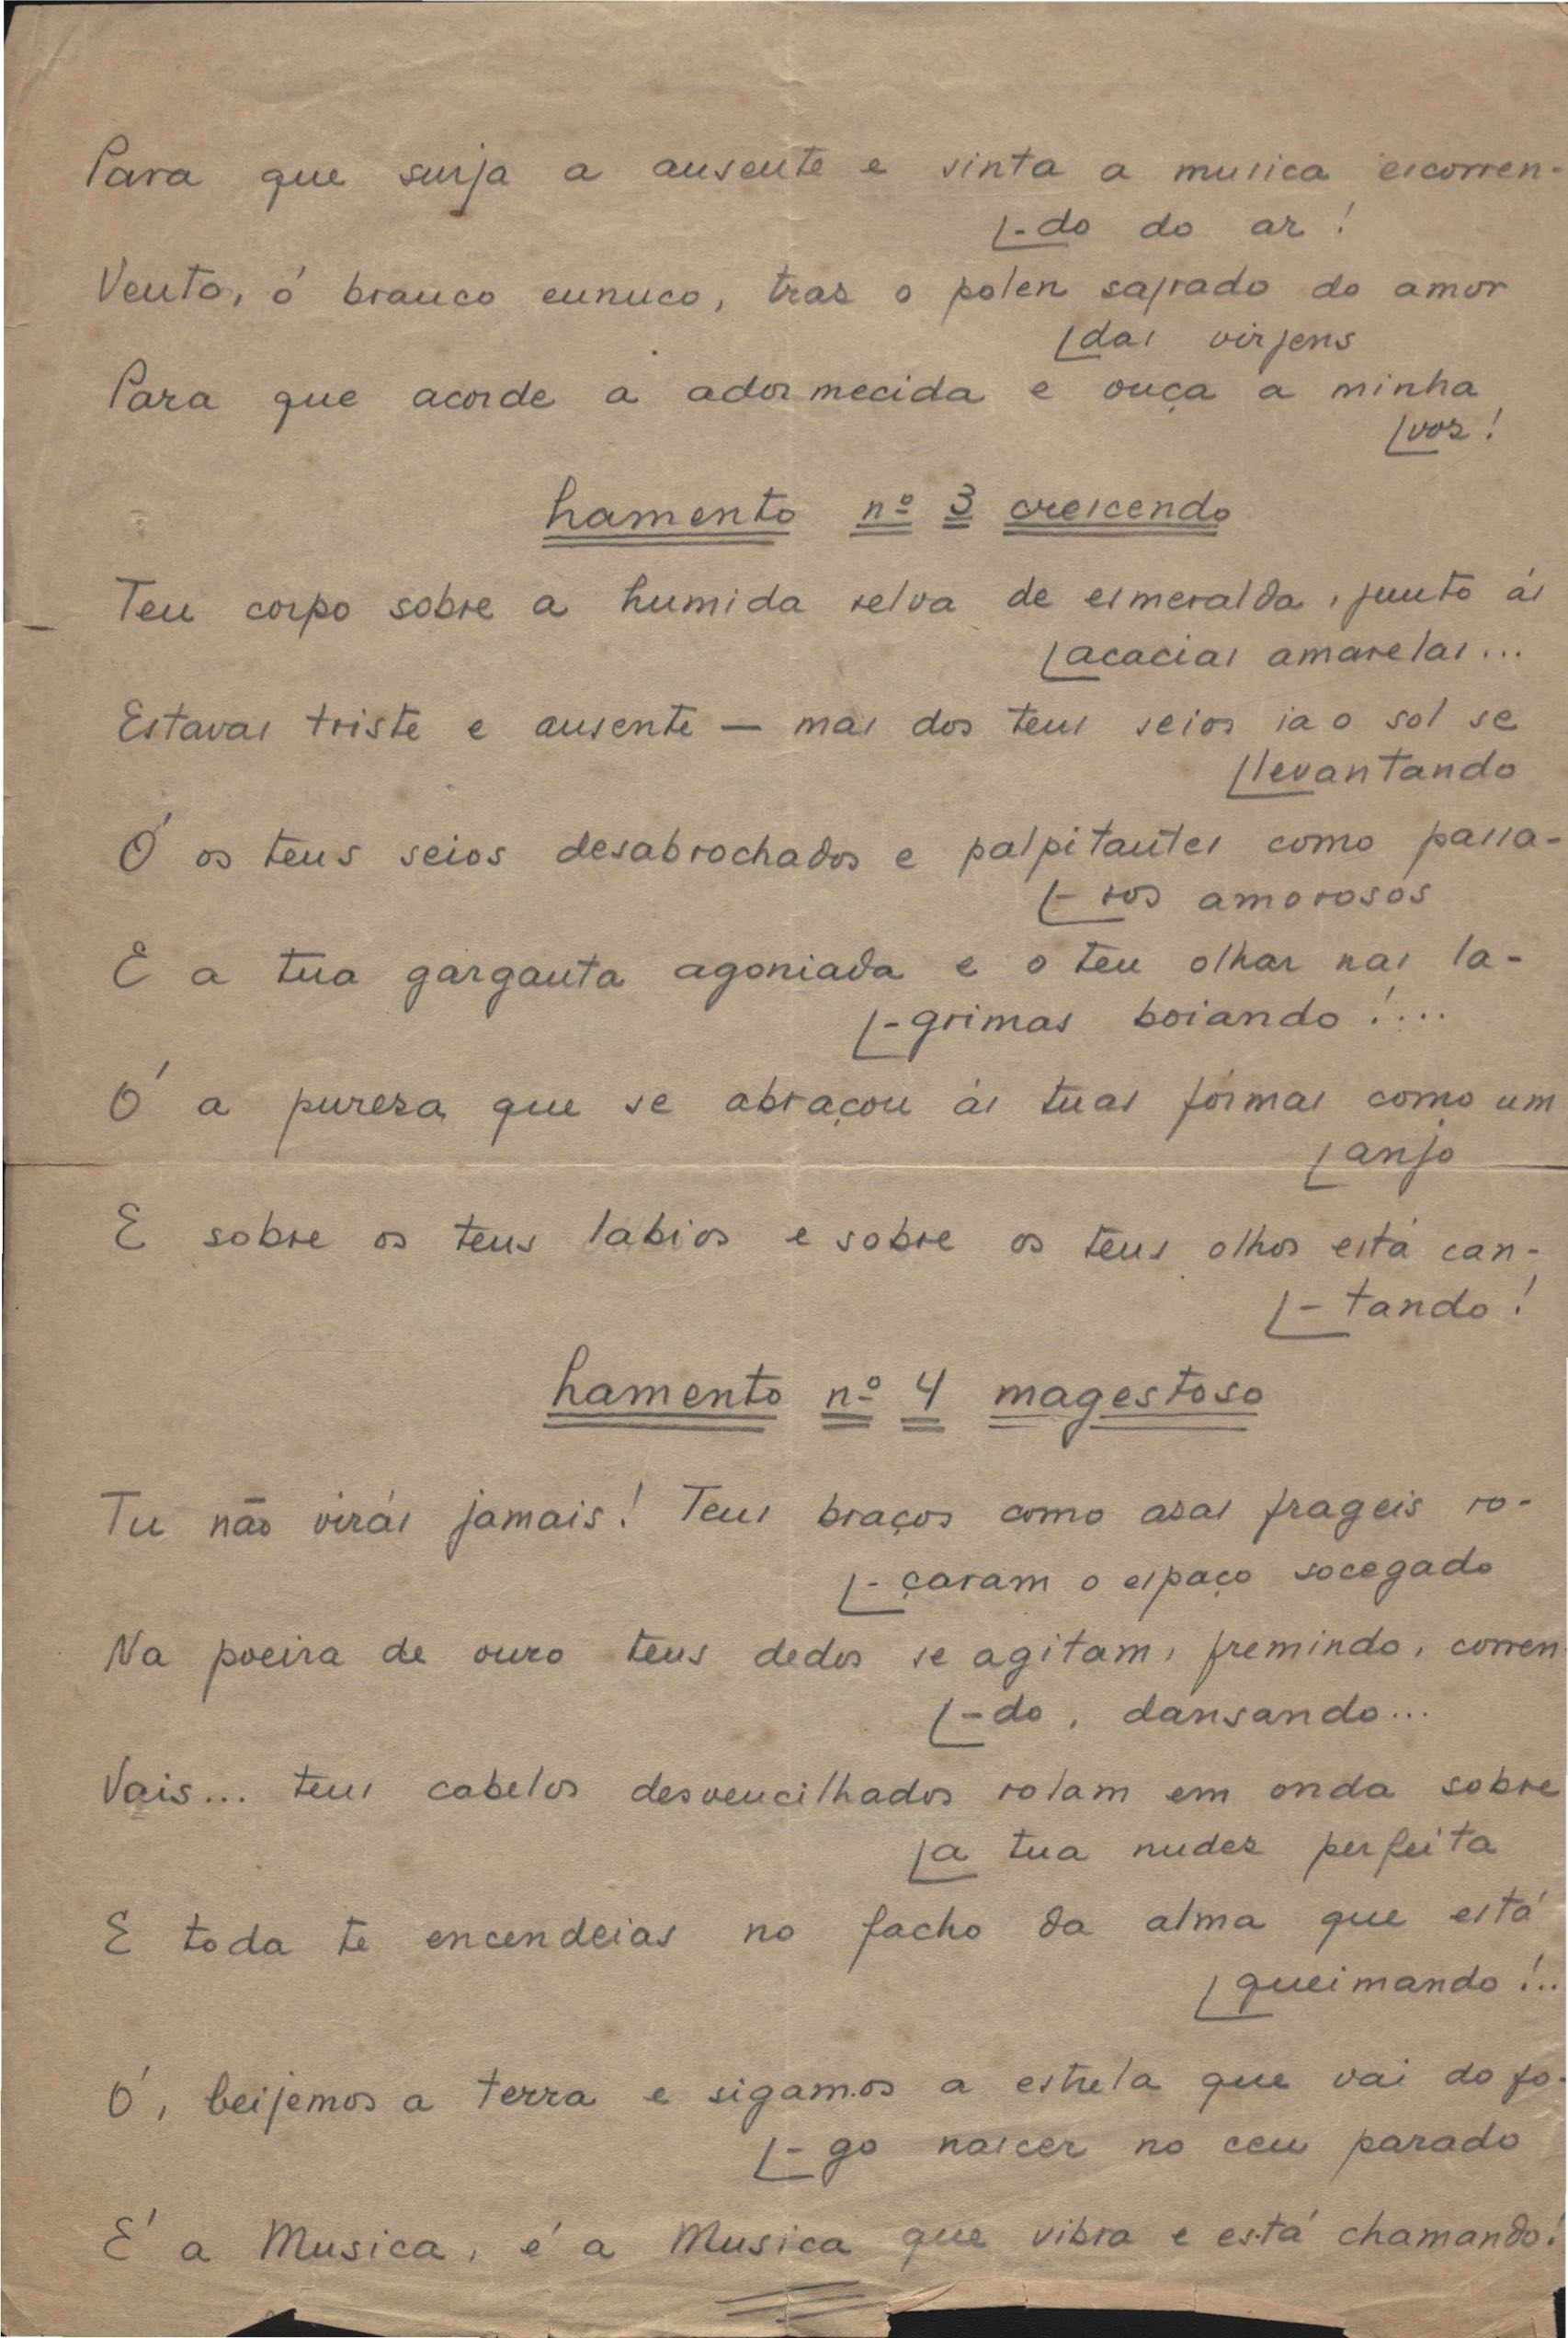 Para que surja a ausente e sinta a musica escorren-
[-do do ar!
Vento, ó branco eunuco, traz o polen sagrado do amor
[das virjens
Para que acorde a adormecida e ouça a minha
[voz!
Lamento nº 3 crescendo
Teu corpo sobre a humida relva de esmeralda, junto ás
[acacias amarelas...
Estavas triste e ausente — mas dos teus seios ia o sol se
[levantando
Ó os teus seios desabrochados e palpitantes como passa-
[-ros amorosos
E a tua garganta agoniada e o teu olhar nas la-
[-grimas boiando!...
Ó a pureza que se abraçou ás tuas fórmas como um
[anjo
E sobre os teus labios e sobre os teus olhos está can-
[-tando!
Lamento nº 4 magestoso
Tu não virás jamais! Teus braços como asas frageis ro-
[-çaram o espaço socegado
Na poeira de ouro teus dedos se agitam, fremindo, corren
[-do, dansando...
Vais... teus cabelos desvencilhados rolam em onda sobre
[a tua nudez perfeita
E toda te encendeias no facho da alma que está
[queimando!..
Ó, beijemos a terra e sigamos a estrela que vai do fo-
[-go nascer no ceu parado
E' a Musica, é a Musica que vibra e está chamando!